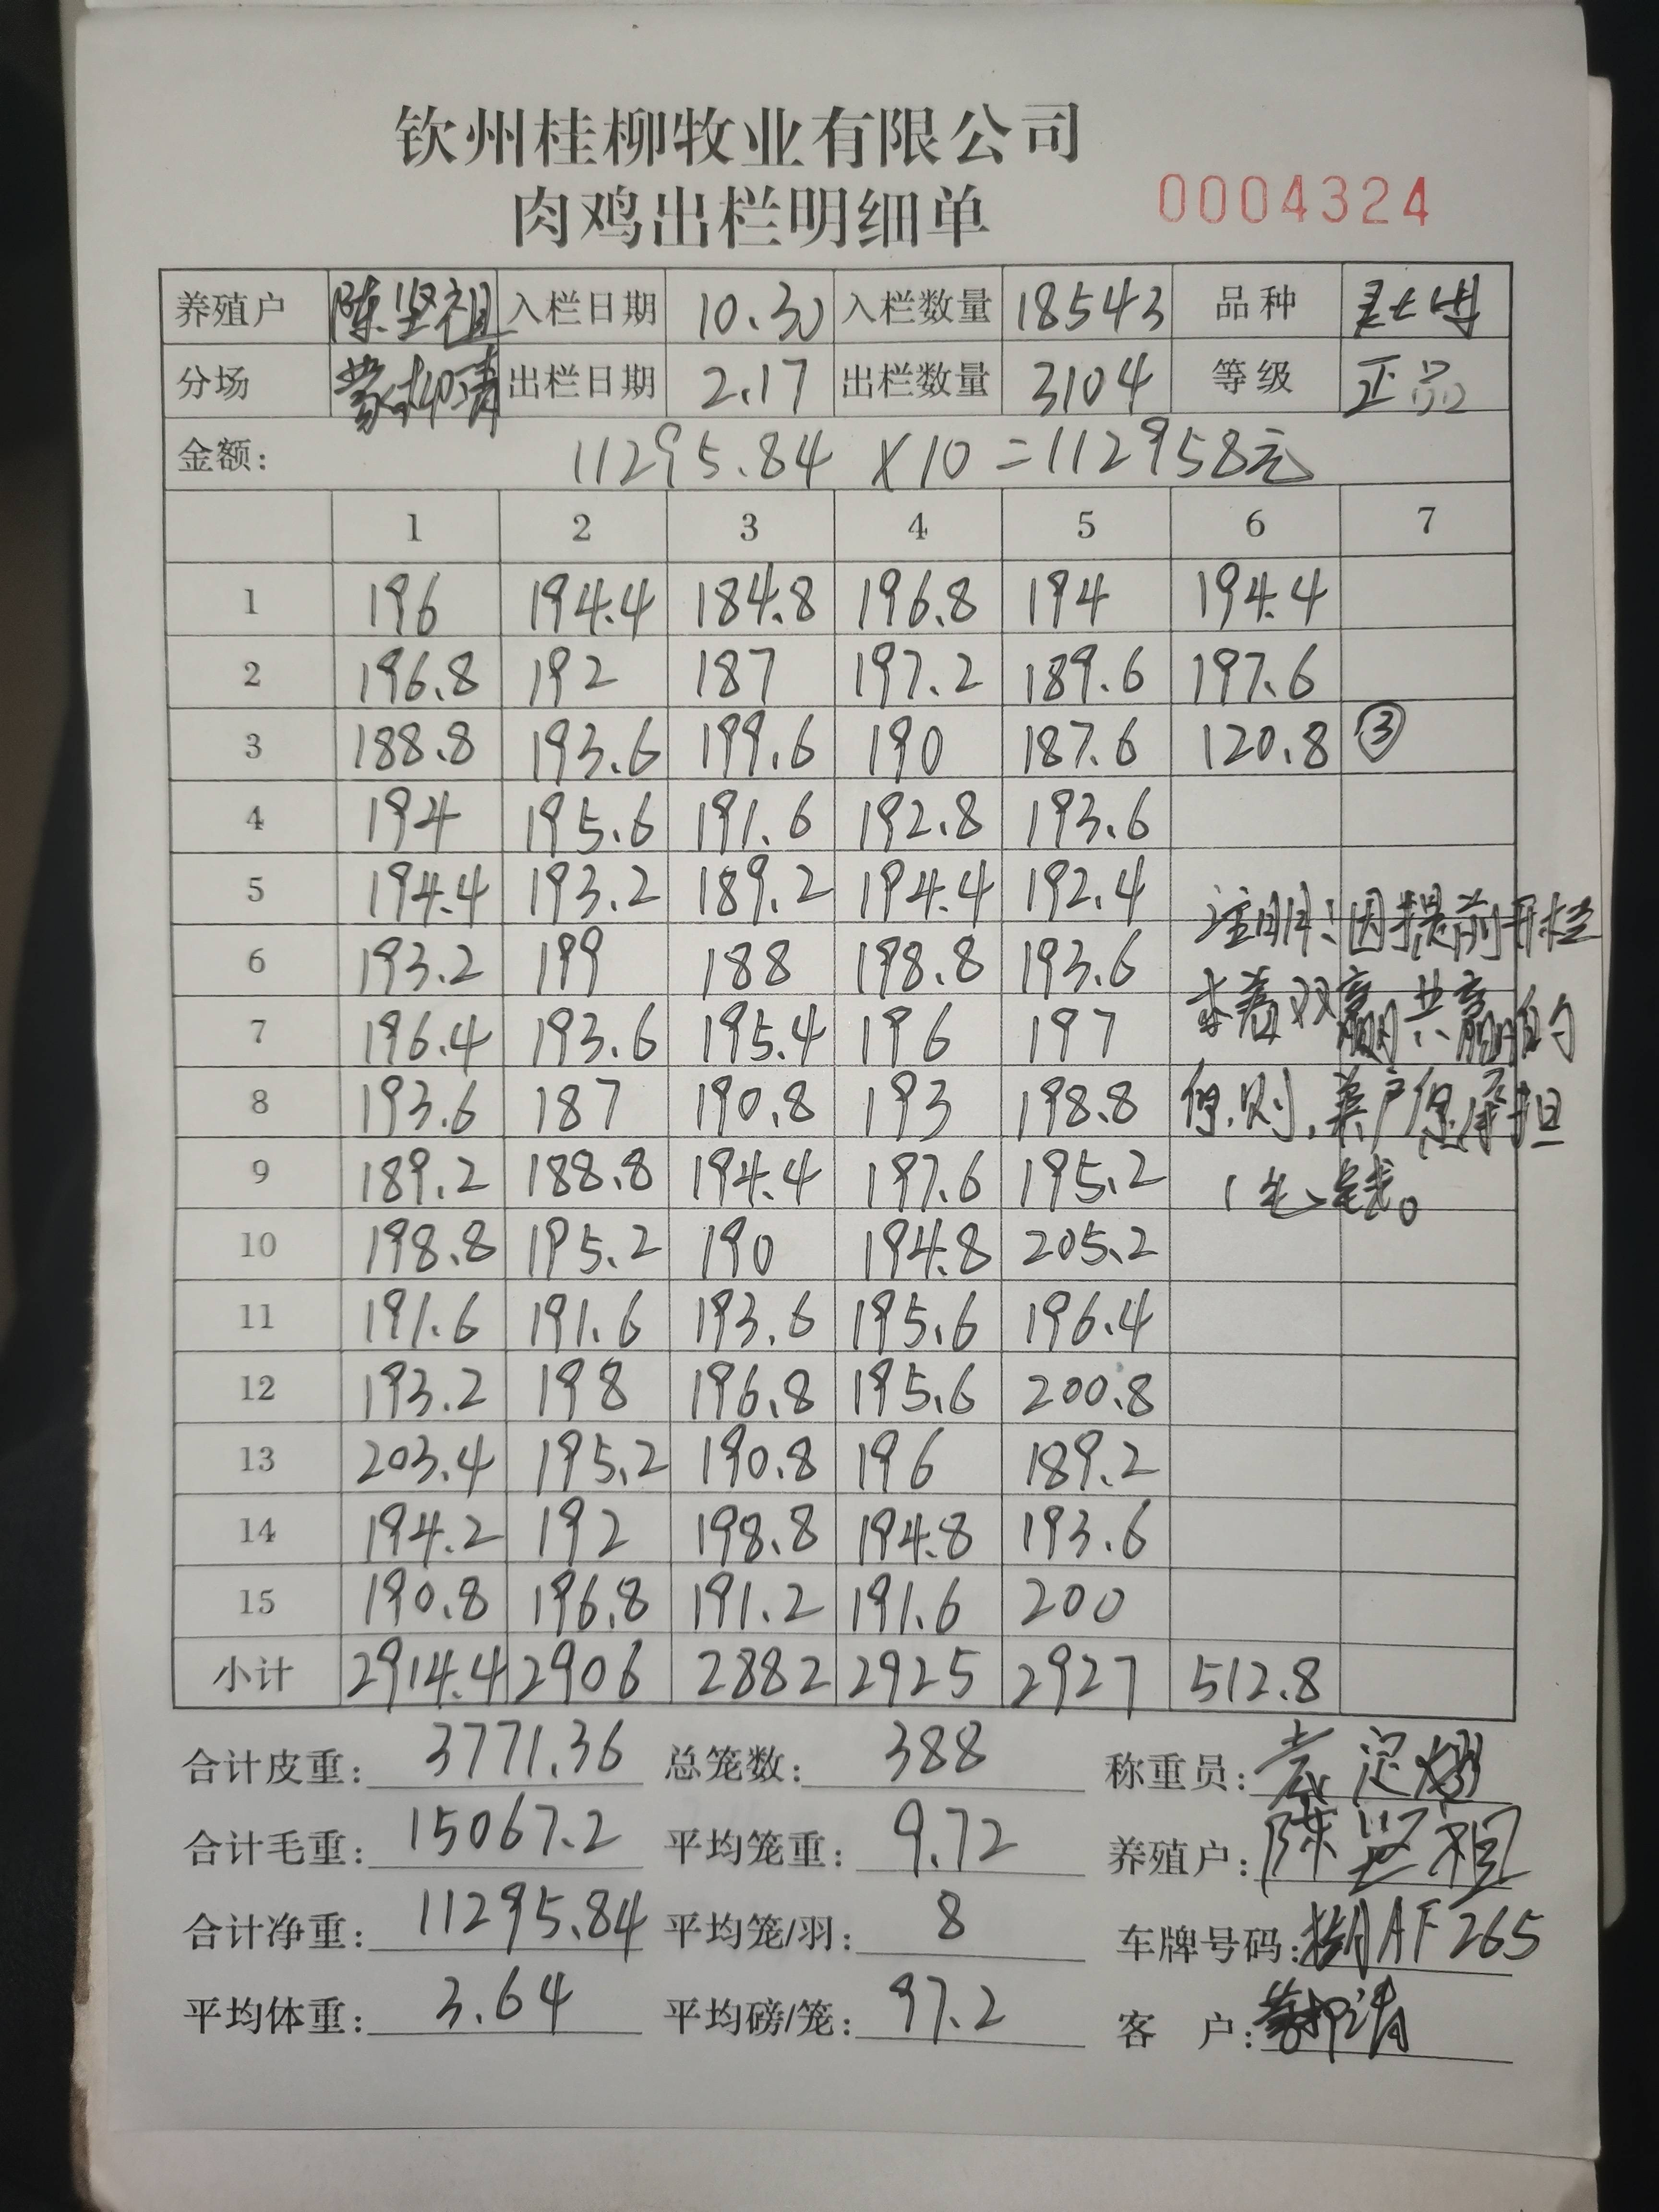 钦州桂柳牧业有限公司
肉鸡出栏明细单 0004324
养殖户 陈坚祖 入栏日期 10.30 入栏数量 18543 品种
分场 出栏日期 2.17 出栏数量 3104 等级 正品
金额: 11295.84 ×10=112958元
1 2 3 4 5 6 7
1 196 194.4 184.8 196.8 194 194.4
2 196.8 192 187 197.2 189.6 197.6
3 188.8 193.6 199.6 190 187.6 120.8 ③
4 194 195.6 191.6 192.8 193.6
5 194.4 193.2 189.2 194.4 192.4 注明:因提前开栏
6 193.2 199 188 198.8 193.6
7 196.4 193.6 195.4 196 197 本着双赢共赢的
8 193.6 187 190.8 193 198.8 原则,养户承担
9 189.2 188.8 194.4 197.6 195.2 1毛钱。
10 198.8 195.2 190 194.8 205.2
11 191.6 191.6 193.6 195.6 196.4
12 193.2 198 196.8 195.6 200.8
13 203.4 195.2 190.8 196 189.2
14 194.2 192 198.8 194.8 193.6
15 190.8 196.8 191.2 191.6 200
小计 2914.4 2906 2882 2925 2927 512.8
合计皮重: 3771.36 总笼数: 388 称重员:
合计毛重: 15067.2 平均笼重: 9.72 养殖户: 陈坚祖
合计净重: 11295.84 平均笼/羽: 8 车牌号码: AF265
平均体重: 3.64 平均磅/笼: 97.2 客 户: